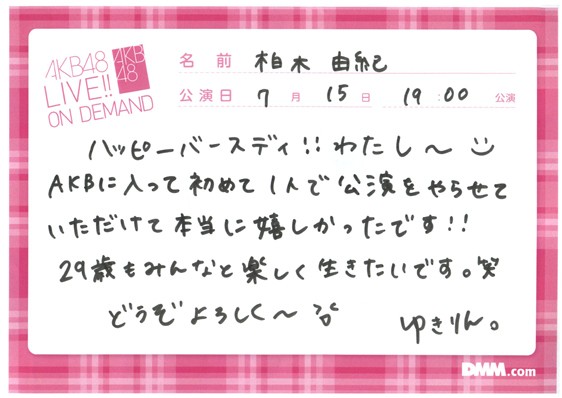 AKB48
LIVE!!
ON DEMAND
AKB
48
名前 柏木 由紀
公演日 7月 15日 19:00 公演
ハッピーバースディ!!わたし〜
AKBに入って初めて1人で公演をやらせて
いただけて本当に嬉しかったです!!
29歳もみんなと楽しく生きたいです。笑
どうぞよろしく〜
ゆきりん。
DMM.com